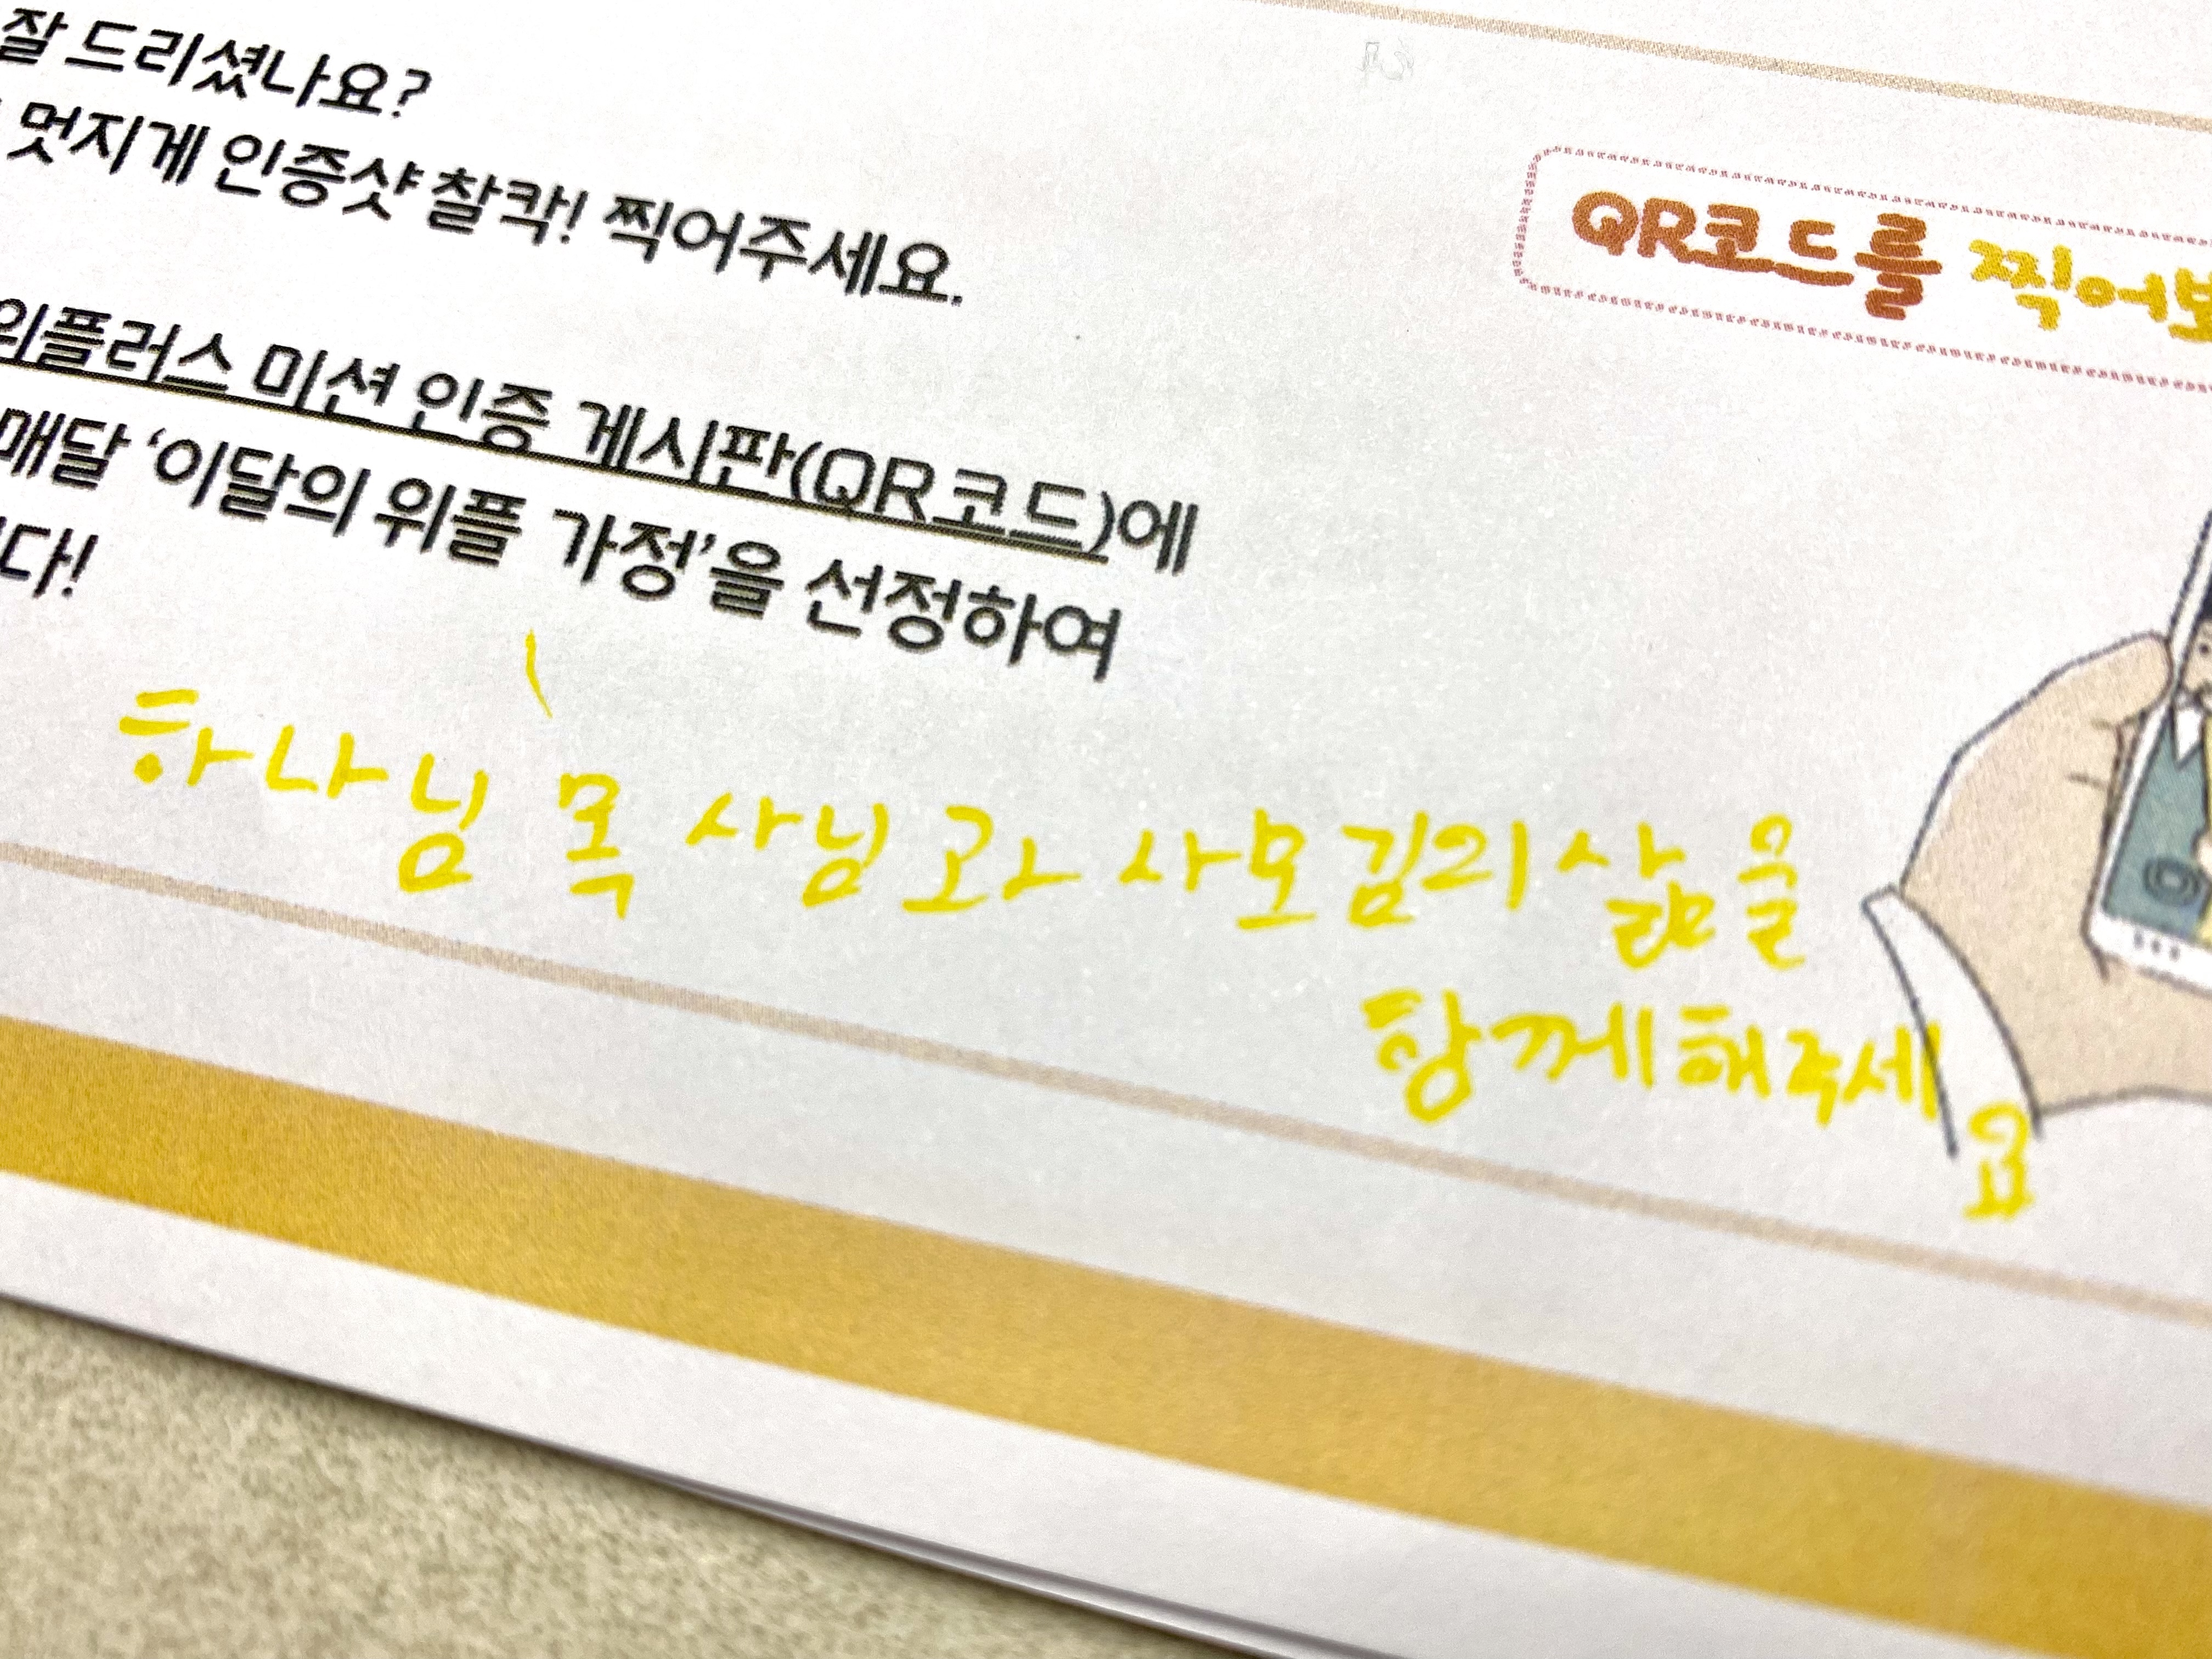 잘 드리셨나요?
멋지게 인증샷 찰칵! 찍어주세요.
QR코드를 찍어보
위플러스 미션 인증 게시판(QR코드)에
매달 ‘이달의 위플 가정’을 선정하여
다!
하나님 목사님과 사모김의 삶을
함께해주세
요